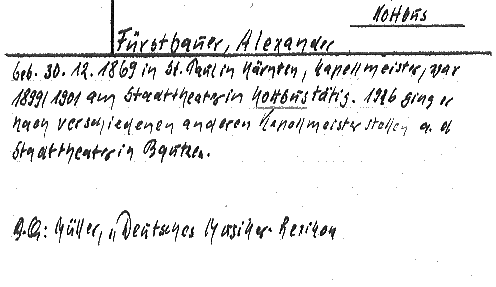 Kottbus
Fürstbauer, Alexander
Geb. 30. 12. 1869 in St. Paul in Kärnten, Kapellmeister, war
1899/1901 am Stadttheater in Kottbus tätig. 1926 ging er
nach verschiedenen anderen Kapellmeister stellen a. d.
Stadttheater in Bautzen.
B.Qu: Müller, „Deutsches Musiker-Lexikon